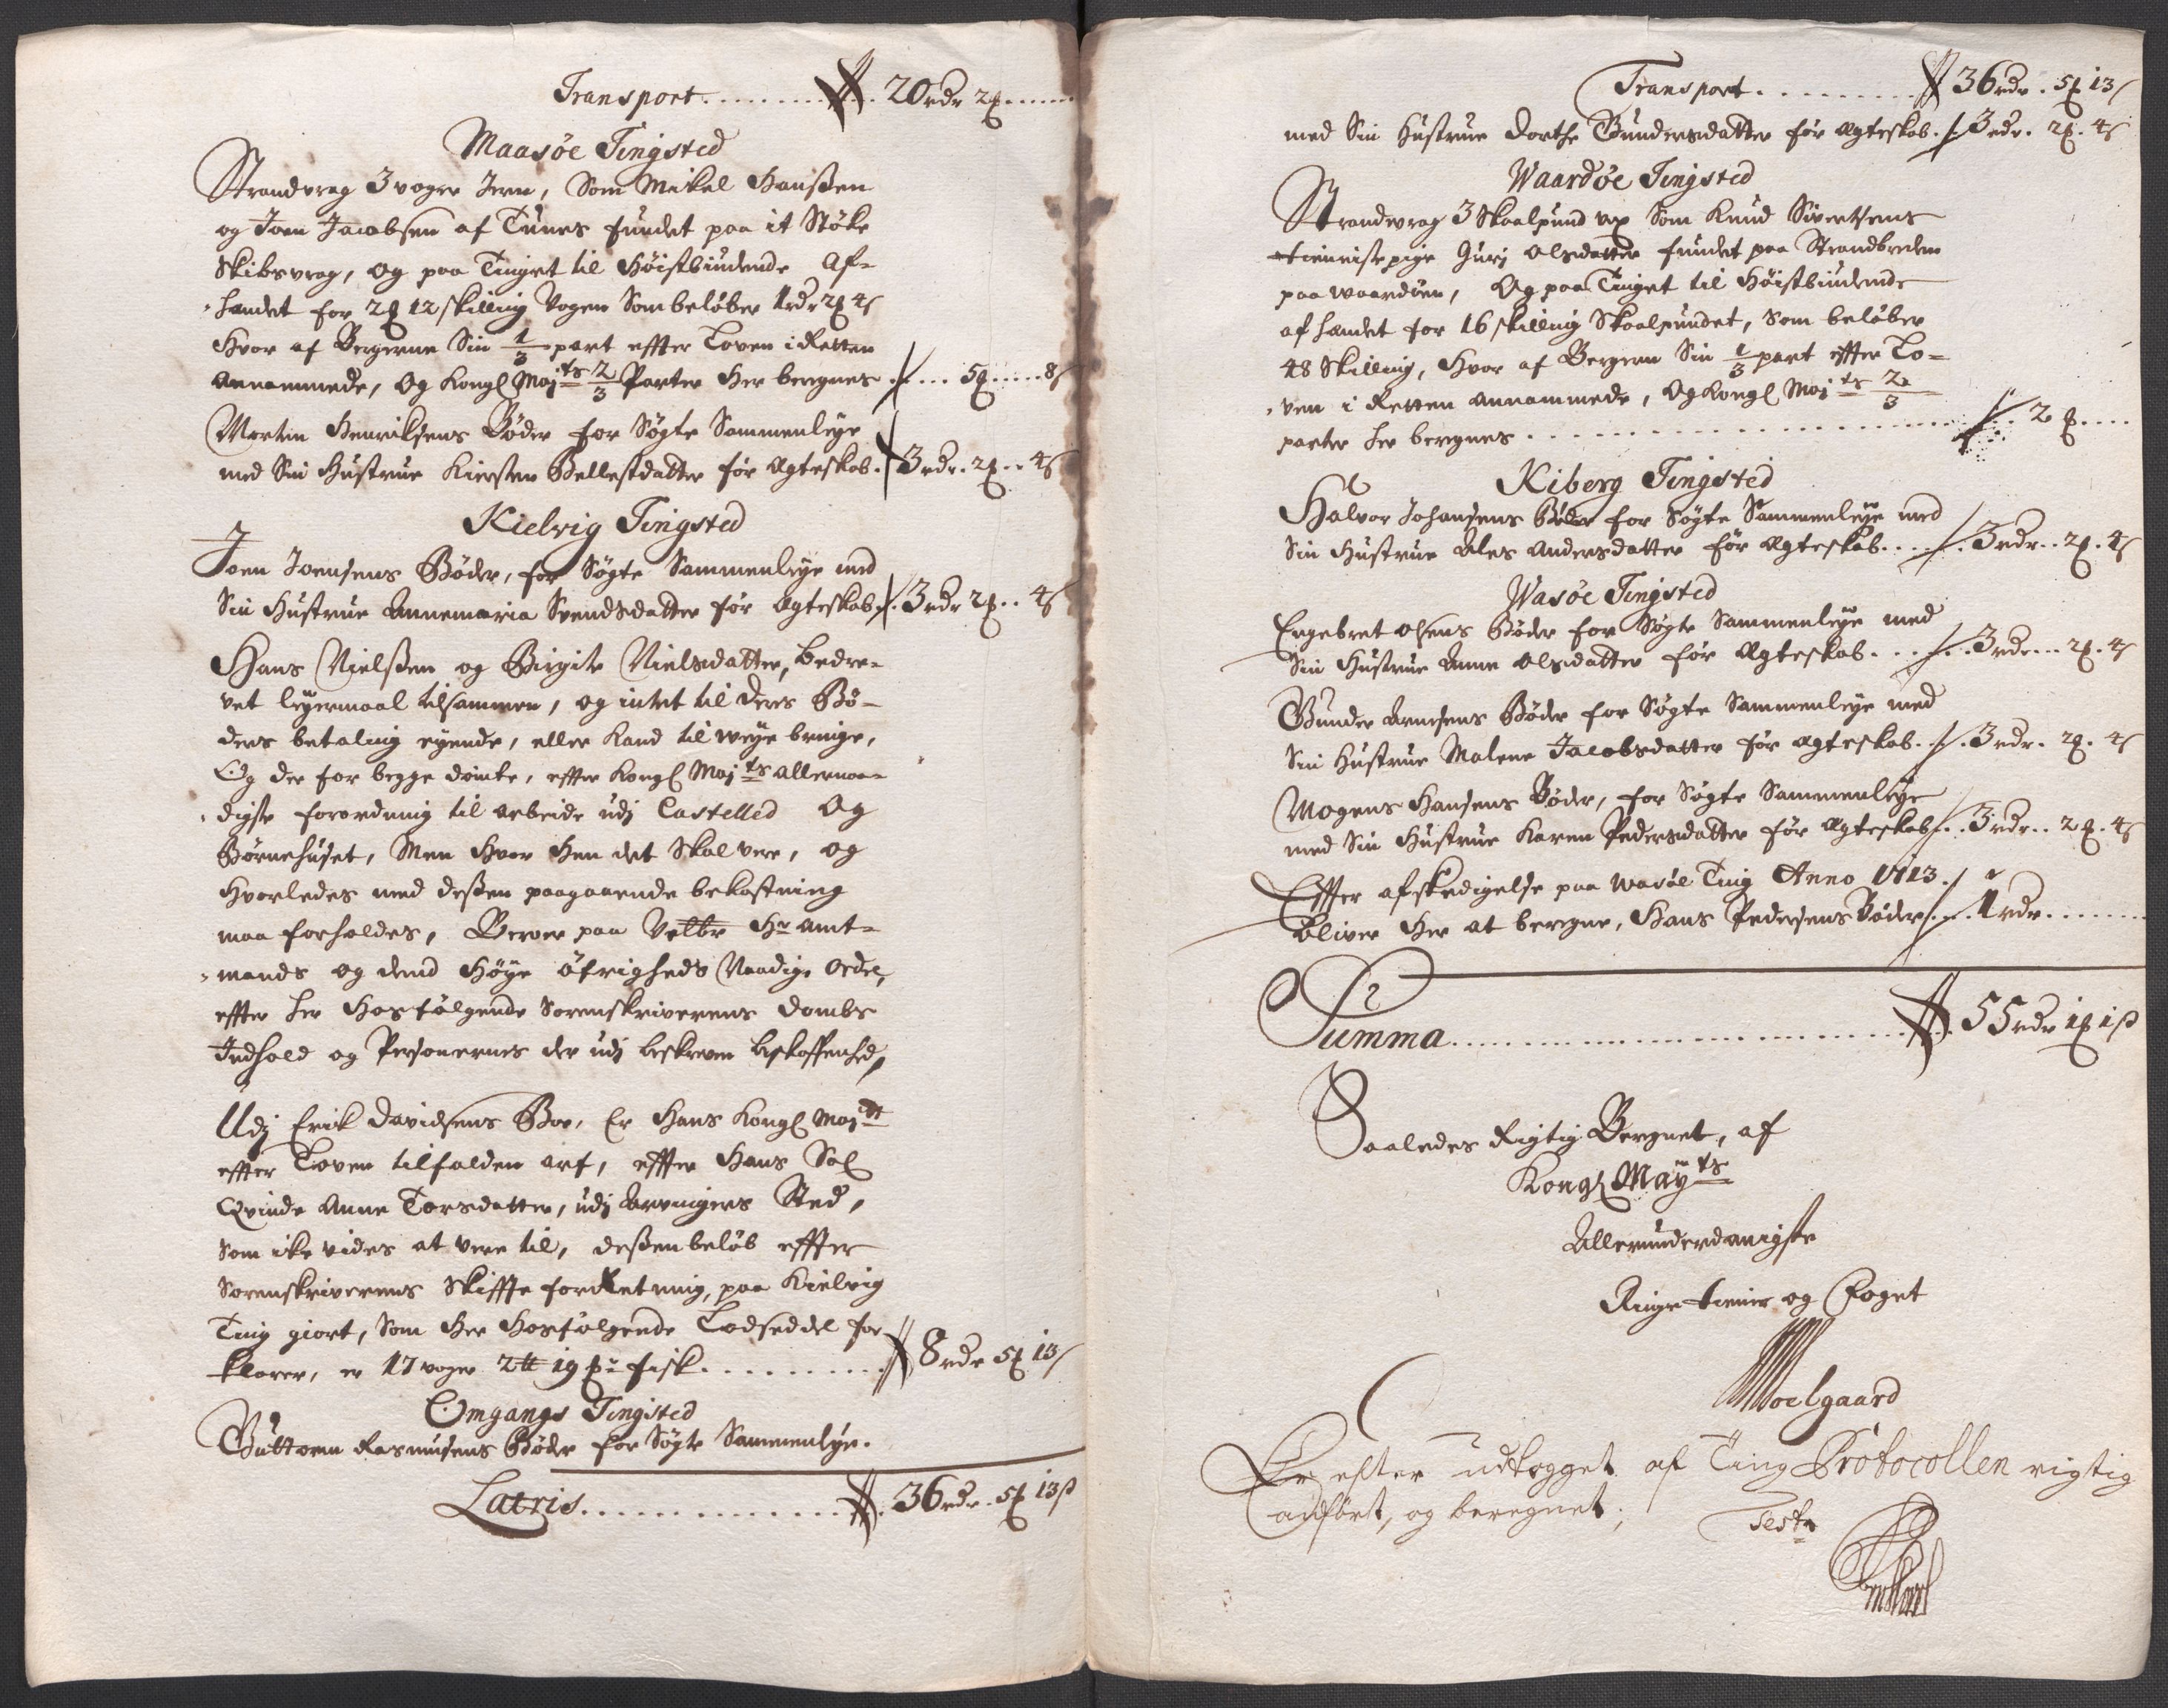 Transport . . . . . . . . 20 rdr 2 ℔ . . . .
Maasøe Tingsted
Strandvrag 3 voger Jern, Som Mikel Hanßen
og Joen Jacobsen af Tunes fundet paa it Støke
Skibsvrag, og paa Tinget til Høistbiudende Af-
hendet for 2 ℔ 12 skilling Vogen Som beløber 1 rdr 2 ℔ 4 s
Hvor af Bergerne Sin 1/3 part effter Loven i Retten
Annammede, Og Kongl Majts 2/3 Parter Her beregnes . . . 5 ℔ . . . 8 s
Morten Henriksens Bøder for Søgte Sammenleye
med Sin Hustrue Kiersten Pellesdatter før Ægteskab . 3 rdr . 2 ℔ . . 4 s
Kielvig Tingsted
Joen Joensens Bøder, for Søgte Sammenleye med
Sin Hustrue Annemaria Svendsdatter før Ægteskab . 3 rdr 2 ℔ . . 4 s
Hans Nielßen og Birgite Nielsdatter, bedre-
vet leyermaal tilsammen, og intet til deres Bø-
ders betaling eyende, eller kand til weye bringe,
Og der for begge dømte, effter Kongl Majts allernaa-
digste forordning til arbeide udj Castelled Og
Børnehuset, Men Hvor Hen det Skal vere, og
Hvorledes med deßen paagaaende bekostning
maa forholdes, Beroer paa Velbr Hr Amt-
mands og dend Høye Øfrigheds Naadige Ordre,
effter her Hosfølgende Sorenskriverens dombs
Indhold og Personernes der udj beskreven beskaffenhed,
Udj Erick Davidsens Boe, Er Hans Kongl Majtt
effter Loven tilfalden arf, effter Hans Sal
Qvinde Anne Torsdatter, udj Arvingers Sted,
Som ike vides at vere til, deßen beløb effter
Sorenskriverens Skiffte forRetning, paa Kielvig
Ting giort, Som Her Hosfølgende Lodseddel for
klarer, er 17 voger 2 ℔ 19 fisk . . . . . . . . . 8 rdr 5 ℔ 13 s
Omgangs Tingsted
Guttorm Rasmusens Bøder for Søgte Sammenleye .
Latris . . . . . . . . . . . . . 36 rdr . 5 ℔ 13 ß
Transport . . . . . . . . . 36 rdr . 5 ℔ 13 s
med Sin Hustrue Dorthe Gundersdatter før Ægteskab . 3 rdr . 2 ℔ . 4 s
Waardøe Tingsted
Strandvrag 3 Skaalpund vox Som Knud Sivertsens
tienistepige Gurj Olsdatter fundet paa Strandbreden
paa Waardøen, Og paa Tinget til Høistbiudende
af hændet for 16 skilling Skaalpundet, Som beløber
48 Skilling, Hvor af Bergeren Sin 1/3 part effter Lo-
ven i Retten annammede, Og Kongl Majts 2/3
parter her beregnes . . . . . . . . . . . . . . . 2 ℔ . . .
Kiberg Tingsted
Halvor Johansens Bøder for Søgte Sammenleye med
Sin Hustrue Ales Andersdatter før Ægteskab . . . . 3 rdr . . 2 ℔ . 4 s
Wasøe Tingsted
Engebret Olsens Bøder for Søgte Sammenleye med
Sin Hustrue Anne Olsdatter før Ægteskab . . . . . 3 rdr . . . 2 ℔ . 4 s
Gunder Arnesens Bøder for Søgte Sammenleye med
Sin Hustrue Malene Jacobsdatter før Ægteskab . . 3 rdr . 2 ℔ . 4 s
Mogens Hansens Bøder, for Søgte Sammenleye
med Sin Hustrue Karen Pedersdatter før Ægteskab . . 3 rdr . . 2 ℔ . 4 s
Effter afskedigelse paa Wasøe Ting Anno 1713 .
bliver Her at beregne, Hans Pedersens Bøder . . 1 rdr . . . . .
Summa . . . . . . . . . . . . . . . . . . . 55 rdr 1 ℔ 1 ß
Saaledes Rigtig Beregnet, af
Kongl Mayts
Allerunderdanigste
Ringe tiener og Foget
Moelgaard
Er efter udtogget af Ting Protocollen rigtig
anført, og beregnet;
Test